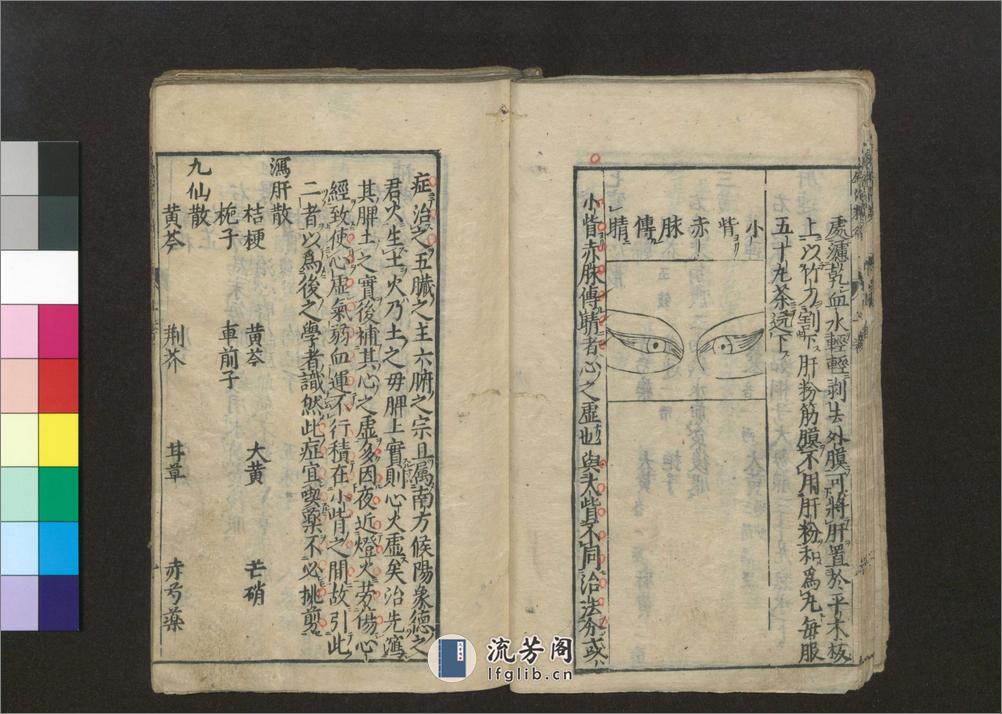 處瀘乾血水輕輕剥去外膜可將肝置於平木板
上以竹刀割下肝粉筋膜不用肝粉和爲丸每服
五十九茶送下
小眥赤脉傳睛
小眥赤脉傳睛者心之虚也與大眥不同治法分或
症治之五臟之主六腑之宗且属南方候陽象德之
君火生土火乃土之毋脾上實則心火虚矣治先瀉
其脾土之實後補其心之虚多因夜近燈火劳傷心
經致使心虚氣弱血運不行積在小眥之間故引此
二者以爲後之學者識然此症宜喫藥不必挑剪
瀉肝散
桔梗 黄芩 大黄 芒硝
梔子 車前子
九仙散
黄芩 荆芥 甘草 赤芍藥
流芳阁
lfglib.cn